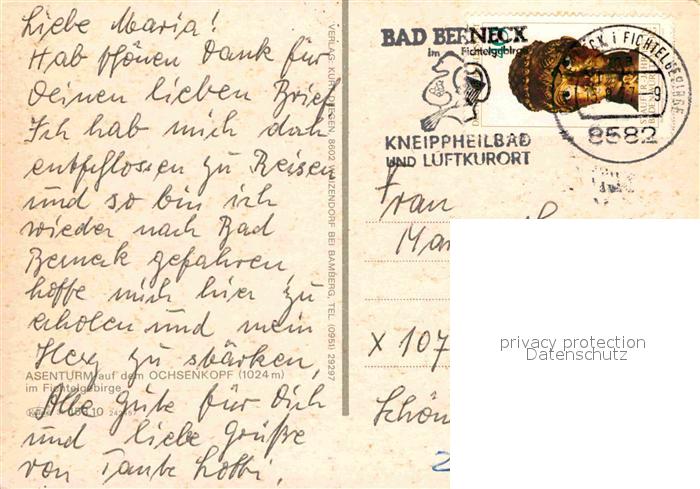 Liebe Maria!
Hab schönen Dank für
Deinen lieben Brief
Ich hab mich doch
entschlossen zu Reisen
und so bin ich
wieder nach Bad
Berneck gefahren,
hoffe mich hier zu
erholen und mein
Herz zu stärken,
ASENTURM auf dem OCHSENKOPF (1024 m)
im Fichtelgebirge
Alle Gute für Dich
und liebe Grüße
von Tante Lotti,
VERLAG: KURT DIESEN, 8602 WAIZENDORF BEI BAMBERG, TEL. (0951) 29297
BAD BERNECK
im Fichtelgebirge
KNEIPPHEILBAD
UND LUFTKURORT
BERNECK i FICHTELGEBIRGE
8582
Frau
Mar
X 107
Schön
privacy protection
Datenschutz